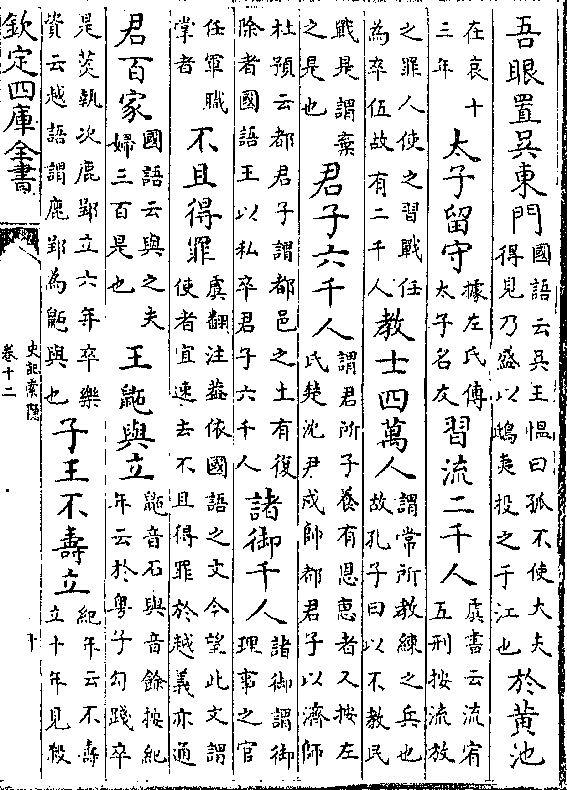 吾眼置吳東門國語云吳王慍曰孤不使大夫得見乃盛以鴟夷投之于江也於黃池
在哀十三年太子留守據左氏傳太子名友習流二千人虞書云流宥五刑按流放
之罪人使之習戰任為卒伍故有二千人教士四萬人謂常所教練之兵也故孔子曰以不教民
戰是謂棄之是也君子六千人謂君所子養有恩惠者又按左氏楚沈尹戌帥都君子以濟師
杜預云都君子謂都邑之士有復除者國語王以私卒君子六千人諸御千人諸御謂御理事之官
任軍職掌者不且得罪虞翻注葢依國語之文今望此文謂使者宜速去不且得罪於越義亦通
君百家國語云與之夫婦三百是也王鼫與立鼫音石與音餘按紀年云於粵子勾踐卒
是菼執次鹿郢立六年卒樂資云越語謂鹿郢為鼫與也子王不壽立紀年云不壽立十年見殺
欽定四庫全書
史記索隱
卷十二
十